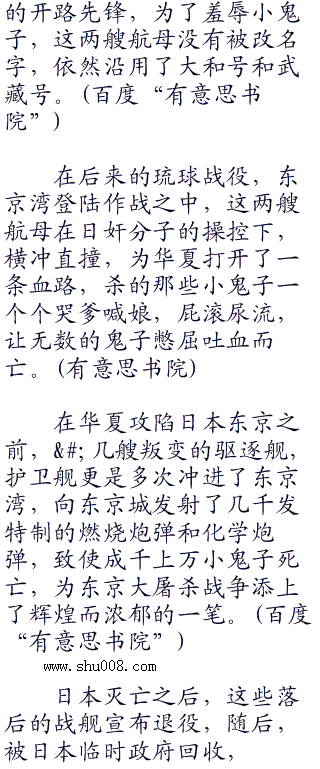 的开路先锋，为了羞辱小鬼
子，这两艘航母没有被改名
字，依然沿用了大和号和武
藏号。(百度“有意思书
院”)
在后来的琉球战役，东
京湾登陆作战之中，这两艘
航母在日奸分子的操控下，
横冲直撞，为华夏打开了一
条血路，杀的那些小鬼子一
个个哭爹喊娘，屁滚尿流，
让无数的鬼子憋屈吐血而
亡。(有意思书院)
在华夏攻陷日本东京之
前，&#;几艘叛变的驱逐舰，
护卫舰更是多次冲进了东京
湾，向东京城发射了几千发
特制的燃烧炮弹和化学炮
弹，致使成千上万小鬼子死
亡，为东京大屠杀战争添上
了辉煌而浓郁的一笔。(百度
“有意思书院”)
www.shu008.com
日本灭亡之后，这些落
后的战舰宣布退役，随后，
被日本临时政府回收，